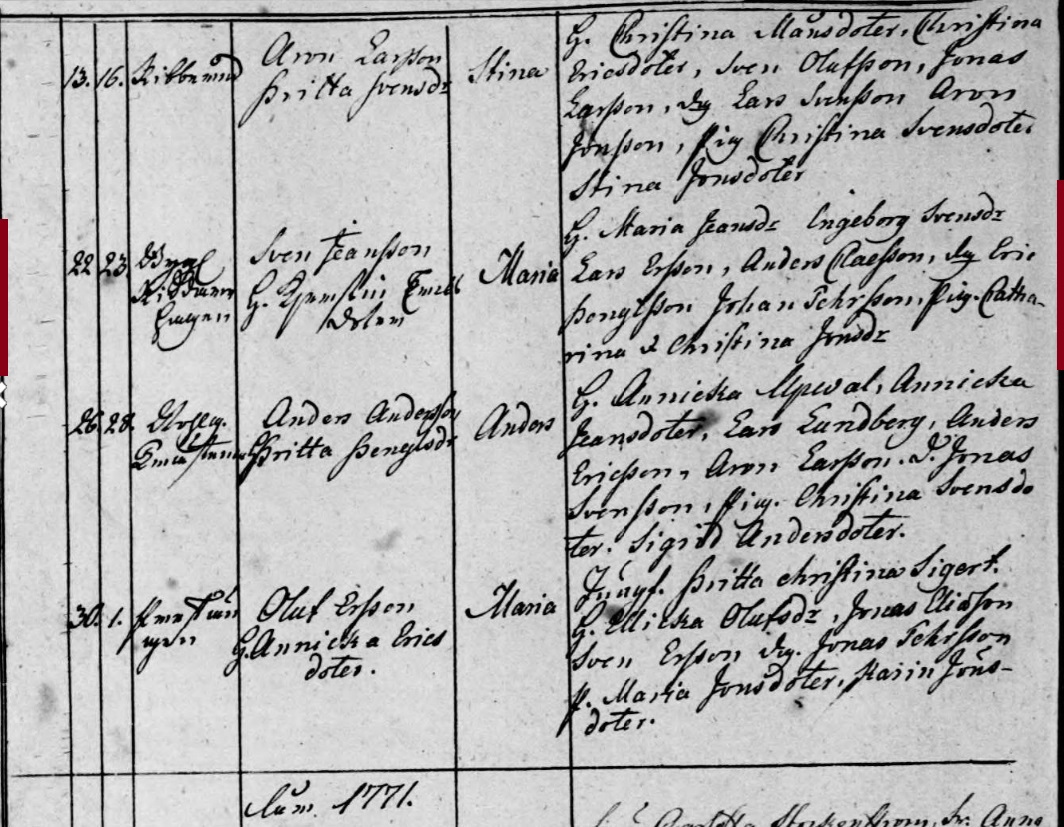 13. 16. Aron Larsson Stina G. Christina Månsdoter, Christina
Britta Svensdr Ericsdoter, Sven Olufsson, Jonas
Larsson, Drg Lars Svensson Aron
Jonsson, Pig Christina Svensdoter
Stina Jonsdoter
22 23 Sven Jeansson Maria G. Maria Jeansdr Ingeborg Svensdr
G. Lars Ersson, Anders Claesson, Drg Eric
doter Bengtsson Johan Pehrsson, Pig. Catha-
rina & Christina Jonsdr
26. 28. Anders Andersson Anders G. Annicka Upwal, Annicka
Britta Bengtsdr Jeansdoter, Lars Lundberg, Anders
Ericsson, Aron Larsson. D. Jonas
Svensson, Pig. Christina Svensdo
ter. Sigrid Andersdoter.
30. 1. Oluf Ersson Maria Jungf. Britta Christina Sigert.
G. Annicka Erics G. Olufsdr, Jonas Eliasson
doter. Sven Ersson Drg. Jonas Pehrsson
P. Maria Jonsdoter, Karin Jöns-
doter.
1771.